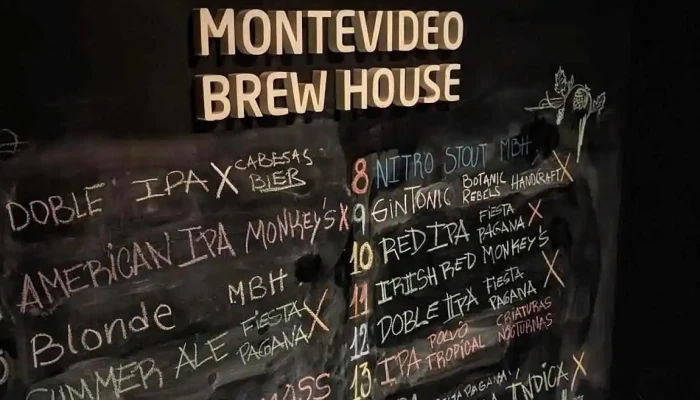 MONTEVIDEO
BREW HOUSE
DOBLE IPA X CABESAS BIER
AMERICAN IPA MONKEY'S X
Blonde MBH
SUMMER ALE FIESTA PAGANA X
MASS
8 NITRO STOUT MBH
9 GINTONIC BOTANIC REBELS HANDCRAFT X
10 RED IPA FIESTA PAGANA X
11 IRISH RED MONKEY'S
12 DOBLE IPA FIESTA PAGANA X
13 IPA POLVO TROPICAL CRIATURAS NOCTURNAS
INDICA X